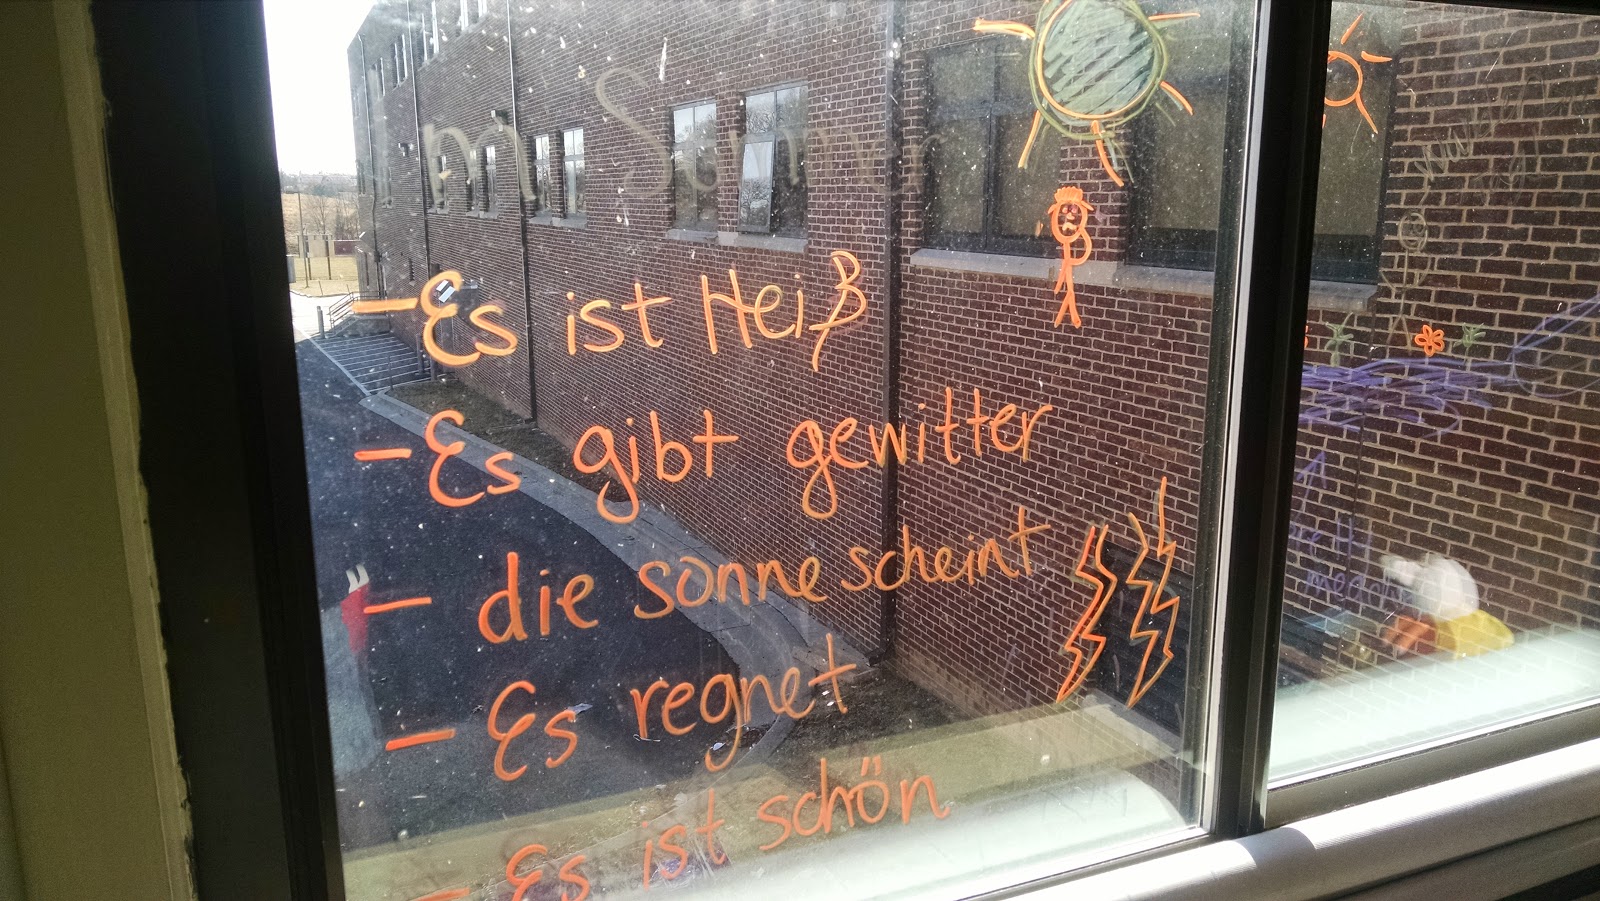 Im Sommer
- Es ist Heiß
- Es gibt gewitter
- die sonne scheint
- Es regnet
- Es ist schön